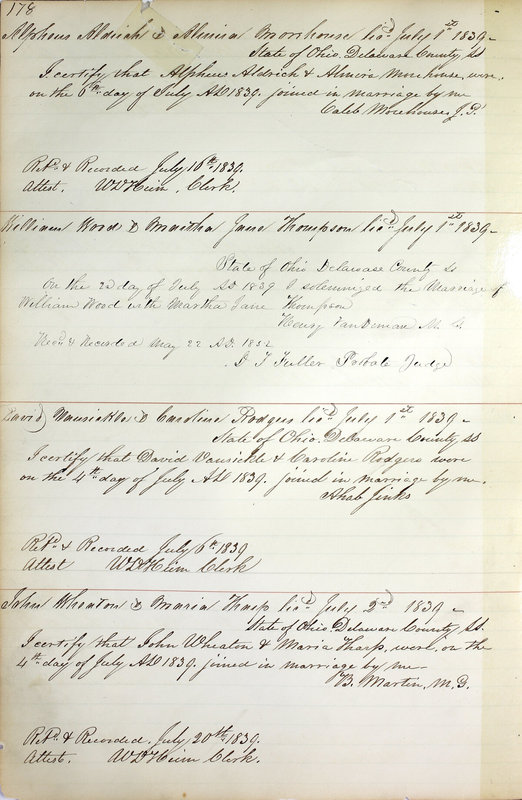 178
Alpheus Aldrich & Almira Morehouse lic.d July 1st 1839-
State of Ohio. Delaware County, ss
I certify that Alpheus Aldrich & Almira Morehouse, were,
on the 6th day of July AD 1839. joined in marriage by me
Caleb Morehouse J.P.
Ret.d & Recorded July 16th 1839.
Attest, W D Heim, Clerk.
William Wood & Martha Jane Thompson lic.d July 1st 1839-
State of Ohio Delaware County ss
On the 2d day of July AD 1839 I solemnized the Marriage of
William Wood with Martha Jane Thompson
Henry Vandeman M. G.
Rec.d & Recorded May 22 AD. 1852
T Fuller Probate Judge
David Vansickle & Caroline Rodgers lic.d July 1st 1839-
State of Ohio. Delaware County, ss
I certify that David Vansickle & Caroline Rodgers were
on the 4th day of July AD 1839. joined in marriage by me.
Ahab Jinks
Ret.d & Recorded July 6th 1839
Attest W D Heim Clerk
John Wheaton & Maria Tharp lic.d July 2nd 1839-
State of Ohio. Delaware County, ss.
I certify that John Wheaton & Maria Tharp, were, on the
4th day of July AD 1839. joined in marriage by me-
B. Martin, M.G.
Ret.d & Recorded, July 20th 1839.
Attest. W D Heim Clerk.